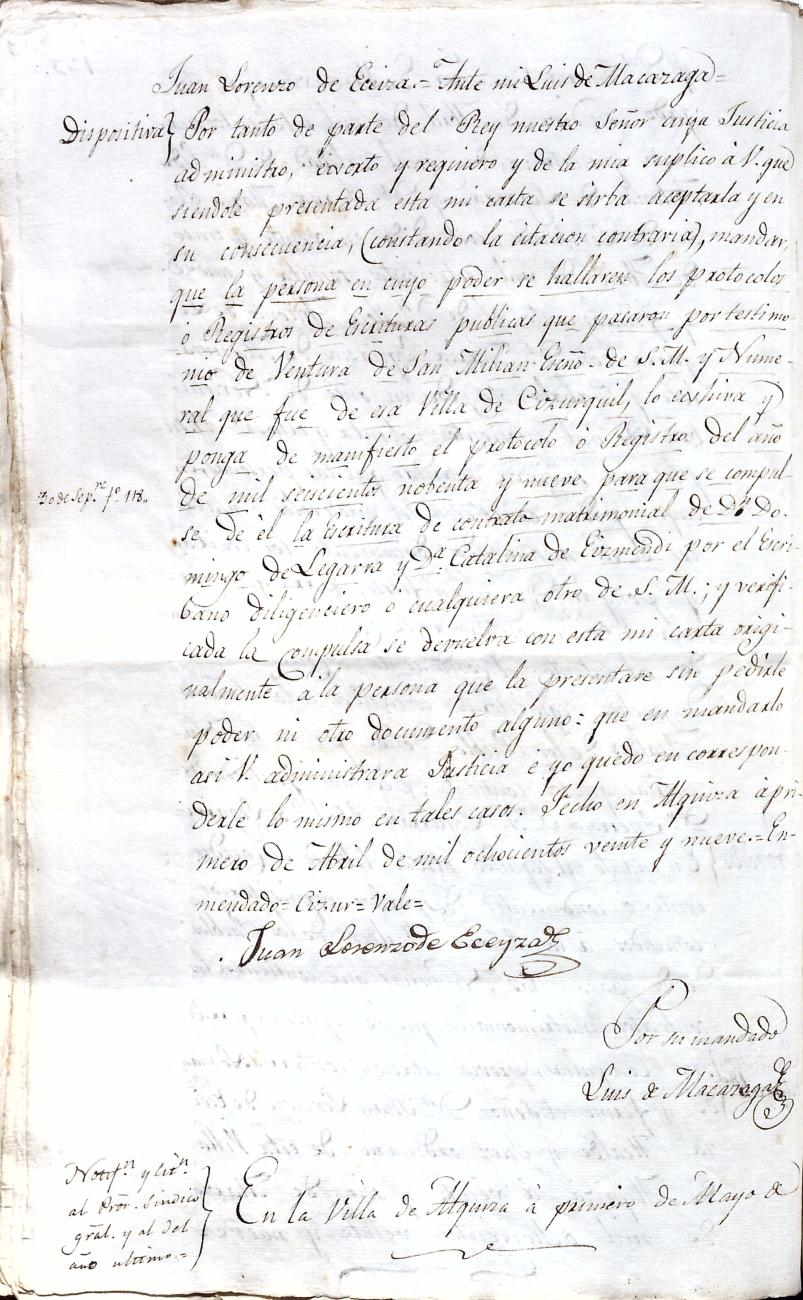 Juan Lorenzo de Eceiza.= Ante mi Luis de Macazaga=
Dispositiva} Por tanto de parte del Rey nuestro Señor cuya Justicia
administro, ecsorto y requiero y de la mia suplico à V. que
siendole presentada esta mi carta se sirba aceptarla y en
su consecuencia, (constando la citacion contraria), mandar,
que la persona en cuyo poder se hallaren los protocolos
ò Registros de Escrituras publicas que pasaron por testimo-
nio de Ventura de San Milian Esño. de S. M. y Nume-
ral que fue de esa Villa de Cizurquil, lo ecshiva y
ponga de manifiesto el protocolo ò Registro del año
de mil seiscientos nobenta y nueve para que se compul-
30 de Sepre. fo. 118.
se de èl la Escritura de contrato matrimonial de Dn. Do-
mingo de Legarra y Da. Catalina de Eizmendi por el Escri-
bano diligenciero ò cualquiera otro de S. M.; y verifi-
cada la Compulsa se devuelva con esta mi carta origi-
nalmente à la persona que la presentare sin pedirle
poder ni otro documento alguno: que en mandarlo
asi V. administrara Justicia è yo quedo en correspon-
derle lo mismo en tales casos. Fecho en Alquiza à pri-
mero de Abril de mil ochocientos veinte y nueve.=En-
mendado=Cizur=Vale=
Juan Lorenzo de Eceyza
Por su mandado
Luis de Macazaga
Notifn. y citn.
al Pror. Sindico
gral. y al del
año ultimo.=
En la Villa de Alquiza à primero de Mayo de